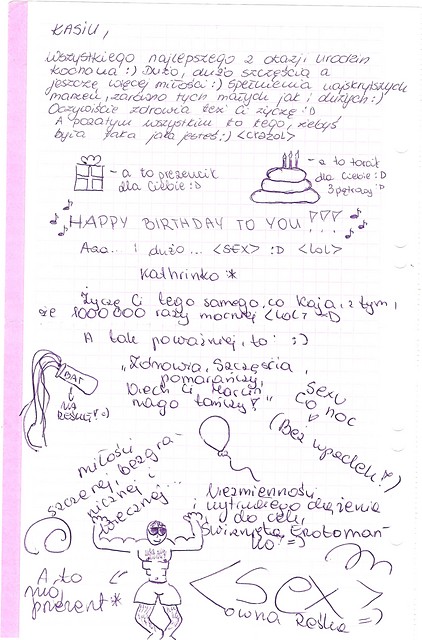 KASIU,
Wszystkiego najlepszego z okazji urodzin
kochana :) Dużo, dużo szczęścia a
jeszcze więcej miłości :) Spełnienia najskrytszych
marzeń, zarówno tych małych jak i dużych :)
Oczywiście zdrowia też Ci życzę :D
A poza tym wszystkim to tego, żebyś
była taka jaka jesteś ;)
- a to prezencik
dla Ciebie :D
- a to torcik
dla Ciebie :D
3 piętrowy :D
HAPPY BIRTHDAY TO YOU !!!
Aaa... i dużo... <SEX> :D <lol>
Kathrinko *
Życzę Ci tego samego, co Kaja, z tym,
że 1000000 razy mocniej <lol> =D
A tak poważniej, to : ;)
"Zdrowia, Szczęścia,
pomarańczy,
Niech Ci Marcin
nago tańczy!"
BAT
NA
Sexu
co noc
(Bez wpadek!)
miłości
szczerej, bezgra-
nicznej i
wiecznej...
Niezmienności
i wytrwałego dążenia
do celu,
Świrnięta Erotoman-
ko! =)
A to
mój
prezent *
<Sex>